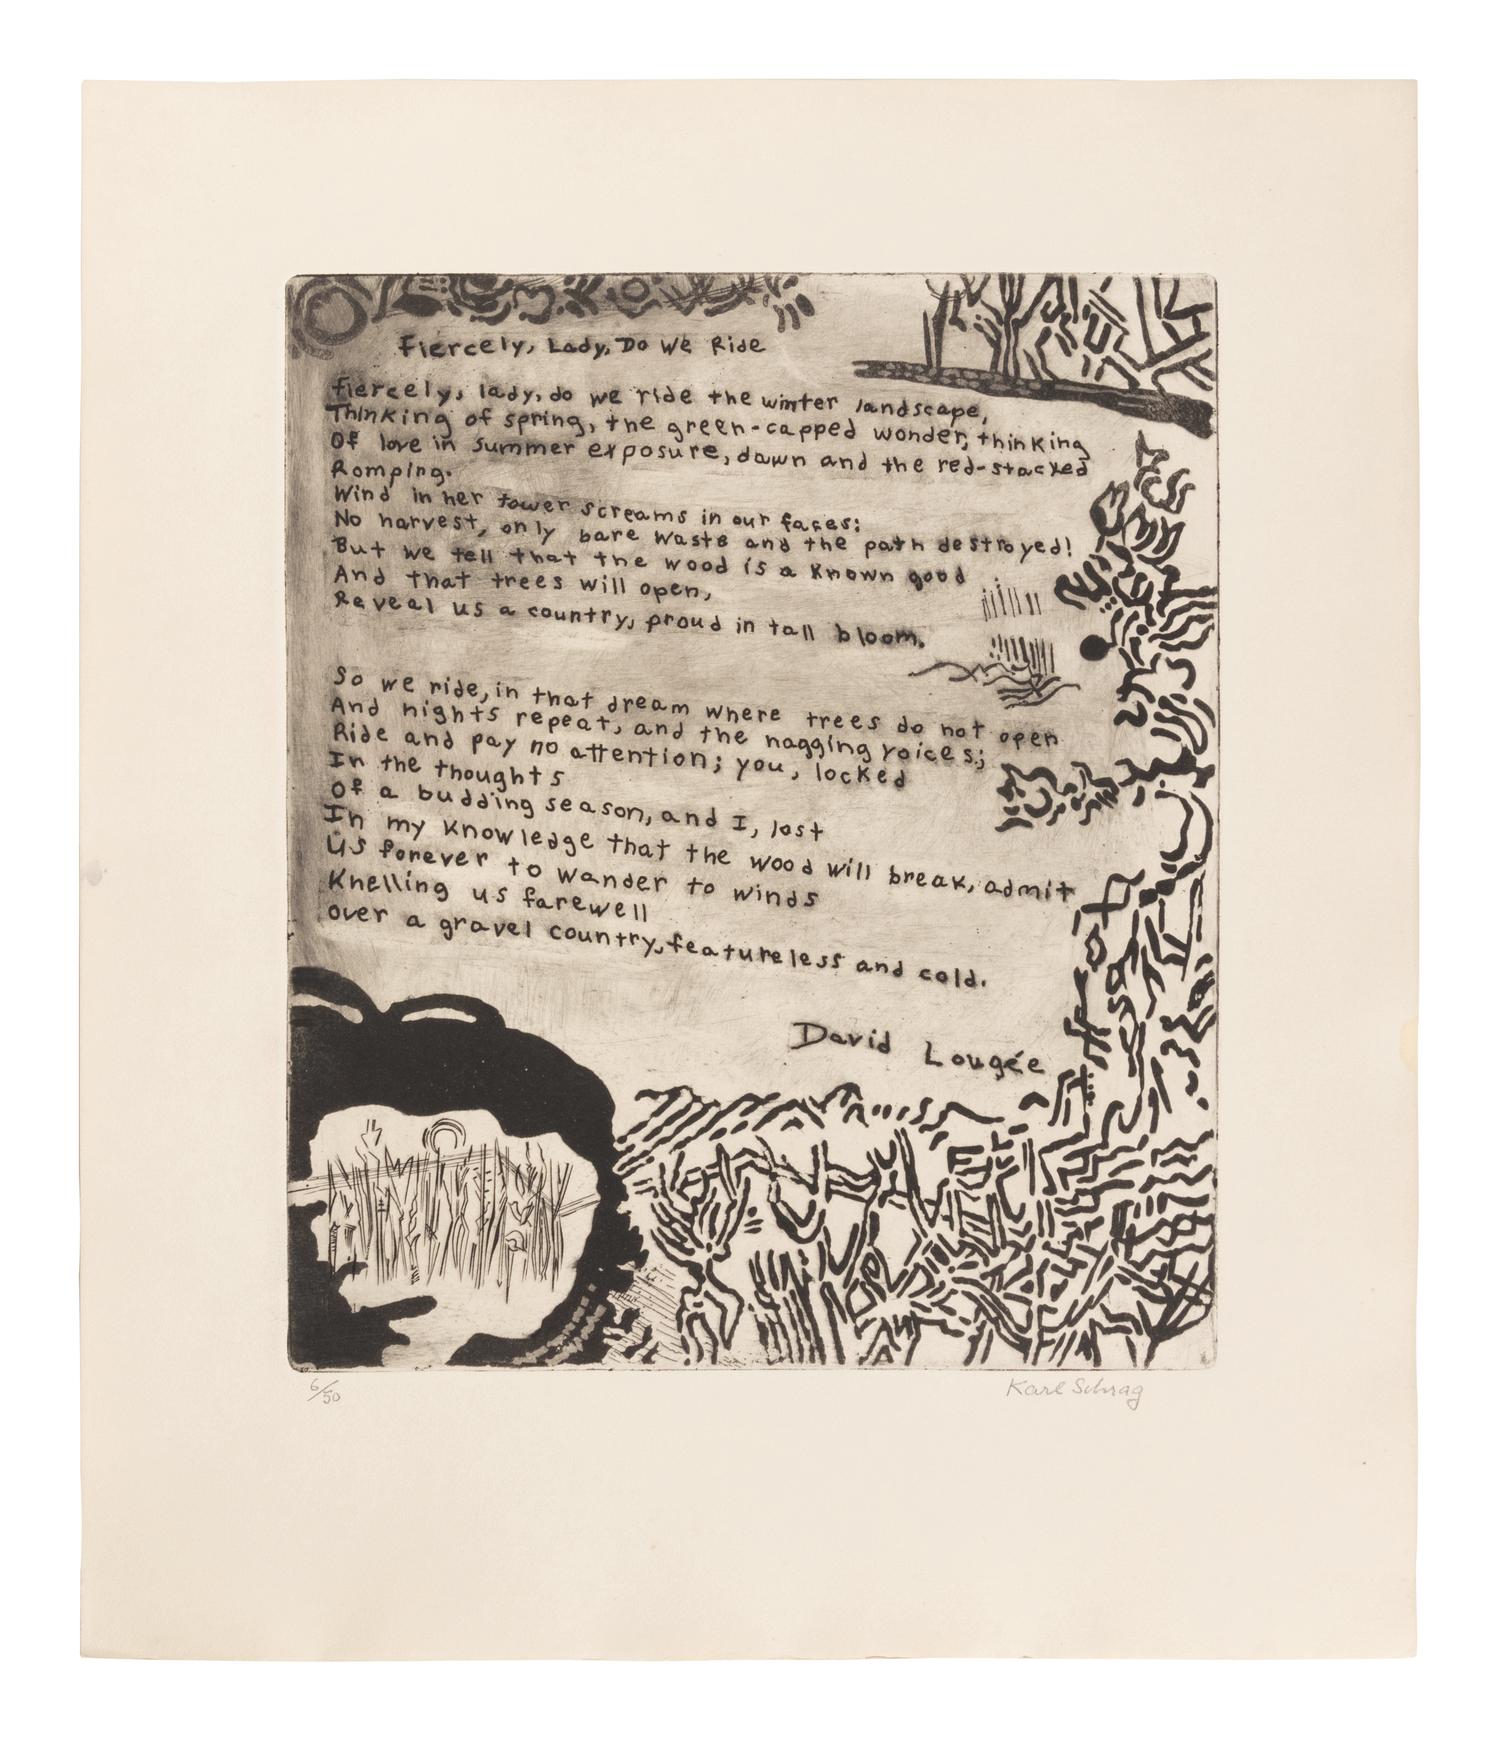 Fiercely, Lady, Do We Ride
Fiercely, lady, do we ride the winter landscape,
Thinking of spring, the green-capped wonder, thinking
Of love in summer exposure, dawn and the red-stacked
Romping.
Wind in her tower screams in our faces:
No harvest, only bare waste and the path destroyed!
But we tell that the wood is a known good
And that trees will open,
Reveal us a country, proud in tall bloom.
So we ride, in that dream where trees do not open
And nights repeat, and the nagging voices;
Ride and pay no attention; you, locked
In the thoughts
Of a budding season, and I, lost
In my knowledge that the wood will break, admit
Us forever to wander to winds
Knelling us farewell
over a gravel country, featureless and cold.
David Lougée
6/50
Karl Schrag